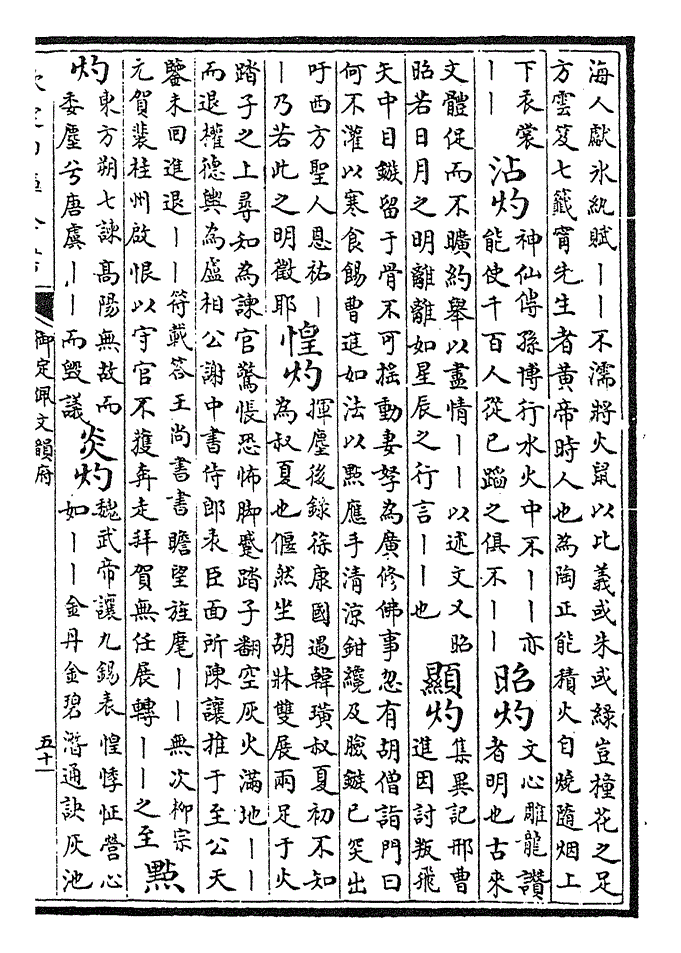 海人獻氷紈賦丨丨不濡將火鼠以比義或朱或緑豈撞花之足
方雲笈七籤甯先生者黄帝時人也為陶正能積火自燒隨烟上
下衣裳
丨丨
沾灼
神仙傳孫博行水火中不丨丨亦
能使千百人從已蹈之俱不丨丨
昭灼
文心雕龍讚
者明也古來
文體促而不曠約舉以盡情丨丨以述文又昭
昭若日月之明離離如星辰之行言丨丨也
顯灼
集異記邢曹
進因討叛飛
矢中目鏃留于骨不可搖動妻孥為廣修佛事忽有胡僧詣門曰
何不灌以寒食餳曹進如法以點應手清涼鉗纔及臉鏃已突出
吁西方聖人恩祐丨
丨乃若此之明徵耶
惶灼
揮麈後録徐康國遇韓璜叔夏初不知
為叔夏也偃然坐胡牀雙展兩足于火
踏子之上尋知為諫官驚悵恐怖脚蹙踏子翻空灰火滿地丨丨
而退權德輿為盧相公謝中書侍郎表臣面所陳讓推于至公天
鑒未回進退丨丨符載答王尚書書瞻望旌麾丨丨無次柳宗
元賀裴桂州啟恨以守官不獲奔走拜賀無任展轉丨丨之至
點
灼
東方朔七諫高陽無故而
委塵兮唐虞丨丨而毁議
炎灼
魏武帝讓九錫表惶悸怔營心
如丨丨金丹金碧潛通訣灰池
御定佩文韻府
五十一